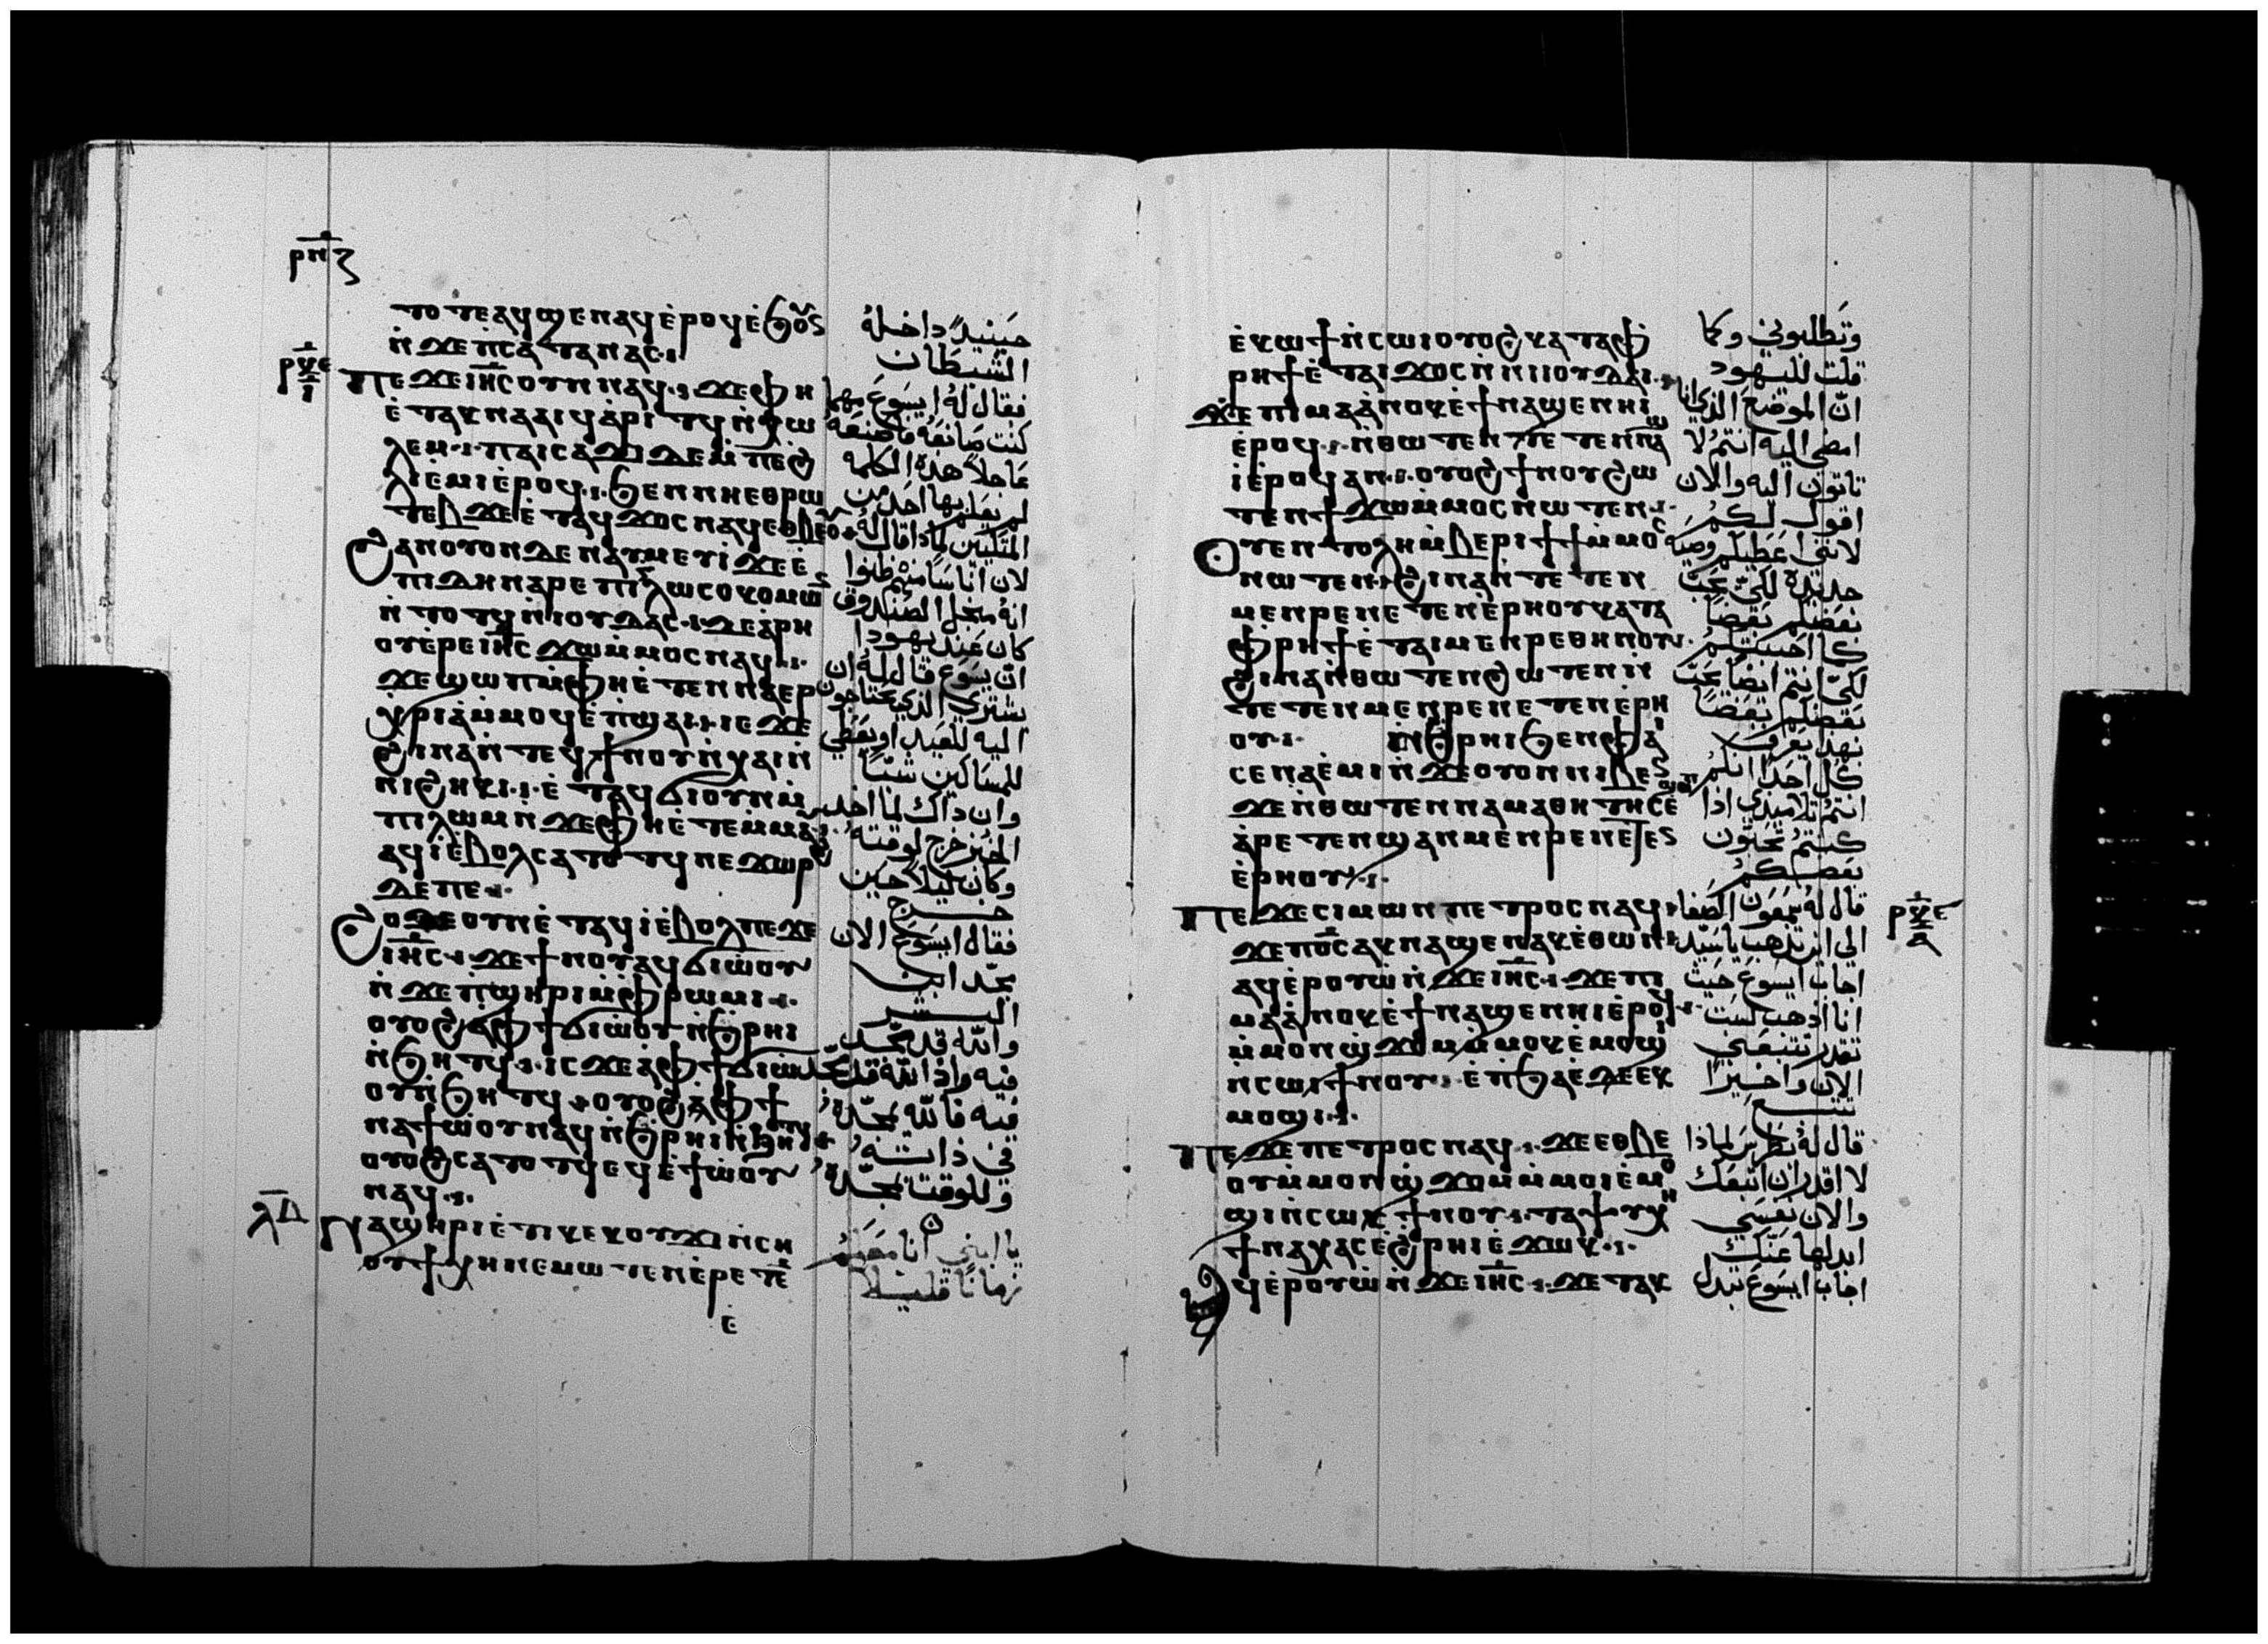 ⲣⲛⲍ
ⲧⲟⲧⲉⲁϥϣⲉⲛⲁϥⲉ̀ⲣⲟϥⲉ̀ϧⲟⲩⲛ
ⲛ̀ϫⲉⲡⲥⲁⲧⲁⲛⲁⲥ
ⲡⲉϫⲉⲓⲏ̅ⲥ̅ⲟⲩⲛⲛⲁϥ ϫⲉⲫⲏ
ⲉ̀ⲧⲁⲕⲛⲁⲁⲓϥⲁ̀ⲣⲓⲧϥⲛ̀ⲭⲱ
ⲗⲉⲙ ⲡⲁⲓⲥⲁϫⲓⲇⲉⲙ̀ⲡⲉϩ̀
ⲗⲓⲉ̀ⲙⲓⲉ̀ⲣⲟϥ ϧⲉⲛⲛⲏⲉⲑⲣⲱ
ⲧⲉⲃ ϫⲉⲉ̀ⲧⲁϥϫⲟⲥⲛⲁϥⲉⲑⲃⲉⲟⲩ
ϩⲁⲛⲟⲩⲟⲛⲇⲉⲛⲁⲩⲙⲉⲩⲓϫⲉⲉ̀
ⲡⲓⲇⲏⲛⲁⲣⲉⲡⲓⲅⲗⲱⲥⲟⲕⲟⲙⲟⲛ
ⲛ̀ⲧⲟⲧϥⲛ̀ⲓⲟⲩⲇⲁⲥ ϫⲉⲁ̀ⲣⲏ
ⲟⲩⲉ̀ⲣⲉⲓⲏ̅ⲥ̅ϫⲱⲙ̀ⲙⲟⲥⲛⲁϥ
ϫⲉϣⲱⲡⲙ̀ⲫⲏⲉ̀ⲧⲉⲛⲛⲁⲉⲣ
ⲭⲣⲓⲁⲙ̀ⲙⲟϥⲉ̀ⲡϣⲁⲓ ⲓⲉϫⲉ
ϩⲓⲛⲁⲛ̀ⲧⲉϥϯⲛⲟⲩⲛ̀ⲭⲁⲓⲛ̀
ⲛⲓϩⲏⲕⲓ ⲉ̀ⲧⲁϥϭⲓⲟⲩⲛⲙ̀
ⲡⲓⲱⲓⲕⲛ̀ϫⲉⲫⲏⲉ̀ⲧⲉⲙⲙⲁⲩ
ⲁϥⲓ̀ⲉ̀ⲃⲟⲗⲥⲁⲧⲟⲧϥⲛⲉϫⲱⲣϩ
ⲇⲉⲡⲉ
ϩⲟϯⲉⲟⲩⲛⲉ̀ⲧⲁϥⲓ̀ⲉ̀ⲃⲟⲗⲡⲉϫⲉ
ⲓⲏ̅ⲥ̅ ϫⲉϯⲛⲟⲩⲁϥϭⲓⲱ̀ⲟⲩ
ⲛ̀ϫⲉⲡϣⲏⲣⲓⲙ̀ⲫⲣⲱⲙⲓ
ⲟⲩⲟϩⲁ̀ⲫϯϭⲓⲱ̀ⲟⲩⲛ̀ϧⲣⲏⲓ
ⲛ̀ϧⲏⲧϥ ⲓⲥϫⲉⲁ̀ⲫϯϭⲓⲱ̀
ⲟⲩⲛ̀ϧⲏⲧϥ ⲟⲩⲟϩⲁ̀ⲫϯ
ⲛⲁϯⲱ̀ⲟⲩⲛⲁϥⲛ̀ϧⲣⲏⲓⲛ̀ϧⲏⲧϥ
ⲟⲩⲟϩⲥⲁⲧⲟⲧϥⲉϥⲉ̀ϯⲱ̀ⲟⲩ
ⲛⲁϥ
ⲛⲁϣⲏⲣⲓⲉ̀ⲧⲓⲕⲉⲕⲟⲩϫⲓⲛ̀ⲥⲏ
ⲟⲩϯⲭⲏⲛⲉⲙⲱⲧⲉⲛⲉ̀ⲣⲉⲧⲉ
ⲉ
ⲗ̅ⲇ̅
حينيذٍ داخله
الشيطان
فقال له ايسوع مهما
كنت صانعه فاصنعه
عاجلاً هذه الكلمه
لم يعلم بها احد من
المتكيين لماذا قال له
لان اناسًا منهم ظنوا
انه منجل الصندوق
كان عند يهودا
انّ يسوع قال له ان
يشتري الذي يحتاجون
اليه للعيد او يعطي
للمساكين شيًا
وان ذاك لما اخذ
الخبز خرج لوقته
وكان ليلاً حين
خرج
فقال ايسوع الان
تمجّد ابن
البشر
والله قد تمجّد
فيه واذا الله قد تمجّد
فيه فالله يمجّده
في ذاته
وللوقت يمجّده
يا ابنيّ انا معكم
زمانًا قليلاً
ⲉ̀ⲕⲱϯⲛ̀ⲥⲱⲓⲟⲩⲟϩⲕⲁⲧⲁⲫ
ⲣⲏϯⲉ̀ⲧⲁⲓϫⲟⲥⲛ̀ⲛⲓⲓⲟⲩⲇⲁⲓ
ϫⲉⲡⲓⲙⲁⲁ̀ⲛⲟⲕⲉ̀ϯⲛⲁϣⲉⲛⲏⲓ
ⲉ̀ⲣⲟϥ ⲛ̀ⲑⲱⲧⲉⲛⲧⲉⲧⲉⲛⲛⲁϣ
ⲓ̀ⲉ̀ⲣⲟϥⲁⲛ ⲟⲩⲟϩϯⲛⲟⲩϩⲱ
ⲧⲉⲛϯϫⲱⲙ̀ⲙⲟⲥⲛⲱⲧⲉⲛ
ⲟⲩⲉⲛⲧⲟⲗⲏⲙ̀ⲃⲉⲣⲓϯϯⲙ̀ⲙⲟⲥ
ⲛⲱⲧⲉⲛ ϩⲓⲛⲁⲛ̀ⲧⲉⲧⲉⲛ
ⲙⲉⲛⲣⲉⲛⲉⲧⲉⲛⲉ̀ⲣⲏⲟⲩⲕⲁⲧⲁ
ⲫⲣⲏϯⲉ̀ⲧⲁⲓⲙⲉⲛⲣⲉⲑⲏⲛⲟⲩ
ϩⲓⲛⲁⲛ̀ⲑⲱⲧⲉⲛϩⲱⲧⲉⲛⲛ̀
ⲧⲉⲧⲉⲛⲙⲉⲛⲣⲉⲛⲉⲧⲉⲛⲉ̀ⲣⲏ
ⲟⲩ ⲛ̀ϩⲣⲏⲓϧⲉⲛⲫⲁⲓ
ⲥⲉⲛⲁⲉ̀ⲙⲓⲛ̀ϫⲉⲟⲩⲟⲛⲛⲓⲃⲉⲛ
ϫⲉⲛ̀ⲑⲱⲧⲉⲛⲛⲁⲙⲁⲑⲏⲧⲏⲥⲉ̀
ⲁ̀ⲣⲉⲧⲉⲛϣⲁⲛⲙⲉⲛⲣⲉⲛⲉⲧⲉⲛ
ⲉ̀ⲣⲏⲟⲩ
ⲡⲉϫⲉⲥⲓⲙⲱⲛⲡⲉⲧⲣⲟⲥⲛⲁϥ
ϫⲉⲡⲟ̅ⲥ̅ⲁⲕⲛⲁϣⲉⲛⲁⲕⲉ̀ⲑⲱⲛ
ⲁϥⲉ̀ⲣⲟⲩⲱ̀ⲛ̀ϫⲉⲓⲏ̅ⲥ̅ ϫⲉⲡⲓ
ⲙⲁⲁ̀ⲛⲟⲕⲉ̀ϯⲛⲁϣⲉⲛⲏⲓⲉ̀ⲣⲟϥ
ⲙ̀ⲙⲟⲛϣ̀ϫⲟⲙⲙ̀ⲙⲟⲕⲉ̀ⲙⲟϣⲓ
ⲛ̀ⲥⲱⲓϯⲛⲟⲩ ⲉ̀ⲡϧⲁⲉ̀ⲇⲉⲉⲕ
ⲙⲟϣⲓ
ⲡⲉϫⲉⲡⲉⲧⲣⲟⲥⲛⲁϥ ϫⲉⲉⲑⲃⲉ
ⲟⲩⲙ̀ⲙⲟⲛϣ̀ϫⲟⲙⲙ̀ⲙⲟⲓⲉ̀ⲙⲟ
ϣⲓⲛ̀ⲥⲱⲕϯⲛⲟⲩ ⲧⲁⲯⲩⲭⲏ
ϯⲛⲁⲭⲁⲥⲉ̀ϩⲣⲏⲓⲉ̀ϫⲱⲕ
ⲁϥⲉ̀ⲣⲟⲩⲱ̀ⲛ̀ϫⲉⲓⲏ̅ⲥ̅ ϫⲉⲧⲉⲕ
وتطلبوني وكما
قلت لليهود
انّ الموضع الذي انا
امضي اليه انتم لا
تاتون اليه والان
اقول لكم
لانني اعطيكم وصيه
جديدة لكيّ يحبّ
بعضكم بعضًا
كما احببتكم
لكيّ انتم ايضًا يحبّ
بعضكم بعضًا
بهذا يعرف
كل احد انكم
انتم تلاميذي اذا
كنتم تحبّون
بعضكم
قال له سمعون الصفا
الي اين تذهب يا سيّد
اجاب ايسوع حيث
انا اذهب لست
تقدر تتبعني
الان واخيرًا
تتبع
قال له بطرس لماذا
لا اقدر ان اتبعك
والان نفسي
ابدلها عنك
اجاب ايسوع تبدل